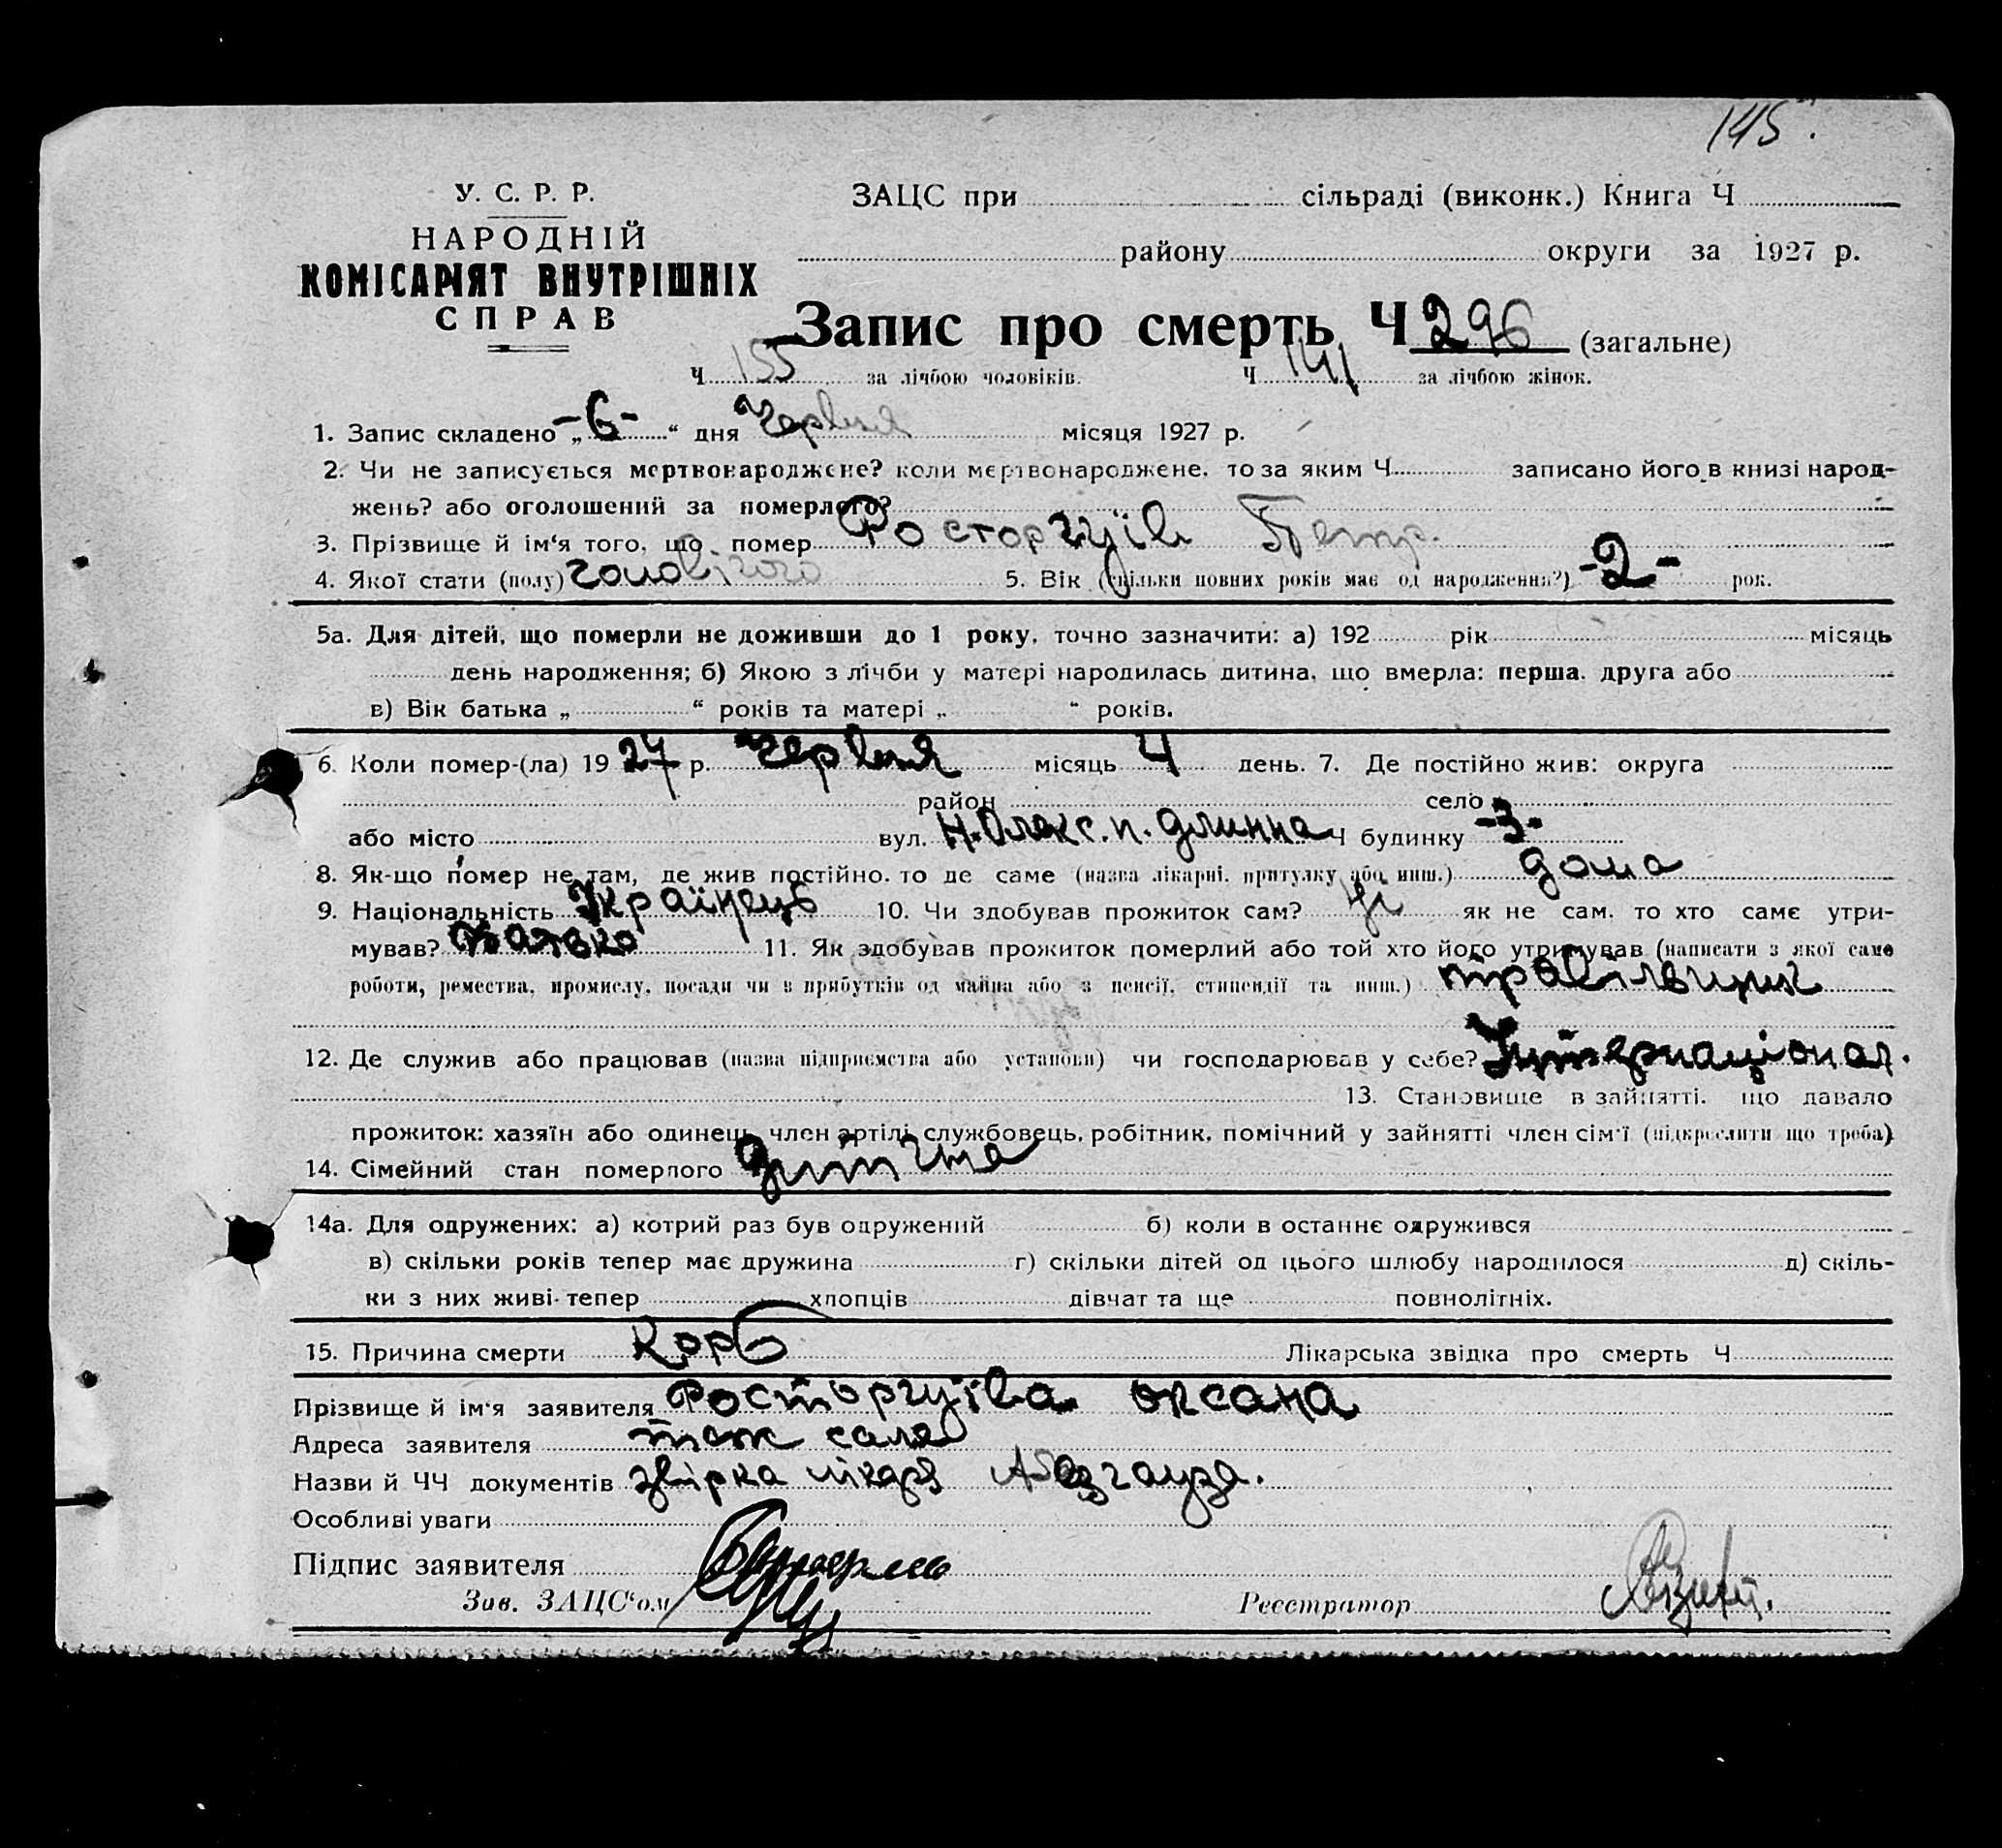 145.
У. С. Р. Р.
НАРОДНІЙ
КОМІСАРІЯТ ВНУТРІШНІХ
СПРАВ
ЗАЦС при сільраді (виконк.) Книга Ч
району округи за 1927 р.
Запис про смерть Ч 296 (загальне)
Ч 155 за лічбою чоловіків. Ч 141 за лічбою жінок.
1. Запис складено „-6-“ дня Червня місяця 1927 р.
2. Чи не записується мертвонароджене? коли мертвонароджене, то за яким Ч записано його в книзі народ-
жень? або оголошений за померлого?
3. Прізвище й ім‘я того, що помер Росторгуїв Петр.
4. Якої стати (полу) чоловічого 5. Вік (скільки повних років має од народження?) -2- рок.
5а. Для дітей, що померли не доживши до 1 року, точно зазначити: а) 192 рік місяць
день народження; б) Якою з лічби у матері народилась дитина, що вмерла: перша, друга або
в) Вік батька „ “ років та матері „ “ років.
6. Коли помер-(ла) 1927 р. Червня місяць 4 день. 7. Де постійно жив: округа
район село
або місто вул. Н. Олекс. п. Длинна Ч будинку -3-
8. Як-що помер не там, де жив постійно, то де саме (назва лікарні, притулку або инш.) дома
9. Національність Українець 10. Чи здобував прожиток сам? Ні як не сам, то хто саме утри-
мував? Батько 11. Як здобував прожиток померлий або той хто його утримував (написати з якої саме
роботи, ремества, промислу, посади чи з прибутків од майна або з пенсії, стипендії та инш.)
12. Де служив або працював (назва підприємства або установи) чи господарював у себе? Інтернаціонал.
13. Становище в зайнятті, що давало
прожиток: хазяїн або одинець, член артілі, службовець, робітник, помічний у зайнятті член сім‘ї (підкреслити що треба)
14. Сімейний стан померлого дитина
14а. Для одружених: а) котрий раз був одружений б) коли в останнє одружився
в) скільки років тепер має дружина г) скільки дітей од цього шлюбу народилося д) скіль-
ки з них живі тепер хлопців дівчат та ще повнолітніх.
15. Причина смерти Корь Лікарська звідка про смерть Ч
Прізвище й ім‘я заявителя Росторгуїва Оксана
Адреса заявителя там саме
Назви й ЧЧ документів звірка лікаря
Особливі уваги
Підпис заявителя
Зав. ЗАЦС‘ом Реєстратор